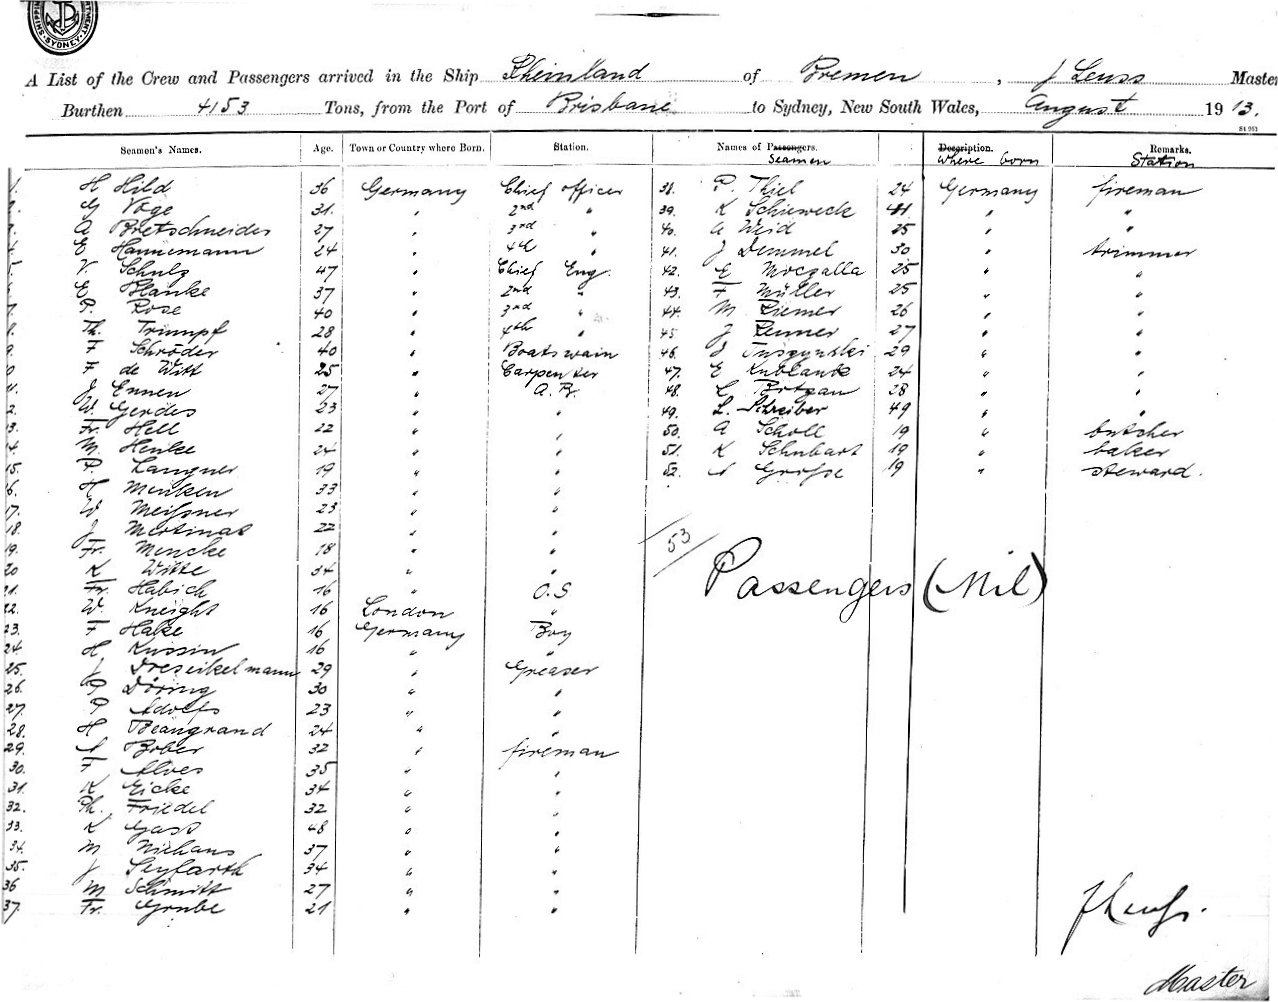 SHIPPING DEPARTMENT. SYDNEY
A List of the Crew and Passengers arrived in the Ship Rheinland of Bremen, J Leuss Master
Burthen 4153 Tons, from the Port of Brisbane to Sydney, New South Wales, August 1913.
Seamen's Names. Age. Town or Country where Born. Station.
1. H Hild 36 Germany Chief officer
2. G Voge 31. " 2nd "
3. A Bretschneider 27 " 3rd "
4. E Hannemann 24 " 4th "
5. V. Schulz 47 " Chief Eng.
E Blanke 37 " 2nd "
7. P. Rose 40 " 3rd "
8. Th. Triumpf 28 " 4th "
9. F Schröder 40 " Boatswain
0 F de Witt 25 " Carpenter
1. J Ennen 27 " A.B.
2. W. Gerdes 23 " "
3. Fr. Hell 22 " "
4. M. Henke 24 " "
15. P. Langner 19 " "
6. H Menken 33 " "
17. W Meißner 23 " "
18. J Martinat 22 " "
19. Fr. Mencke 18 " "
20 K Witte 34 " "
21. Fr. Habich 16 " O.S
22. W. Kneight 16 London "
23. F Hake 16 Germany Boy
24. H Kussin 16 " "
25. J Dreseikelmann 29 " Greaser
26. P Döring 30 " "
27. P Adolfs 23 " "
28. H Beaugrand 24 " "
29. A Bober 32 " fireman
30. F Alves 35 " "
31. K Eicke 34 " "
32. Ph. Friedel 32 " "
33. K Gass 48 " "
34. M Niehaus 37 " "
35. J Seyfarth 34 " "
36 M Schmitt 27 " "
37. Fr. Grube 21 " "
Names of Passengers. Description. Remarks.
Seamen where born Station
38. P. Thiel 24 Germany fireman
39. K Schieweck 41 " "
40. A Weid 25 " "
41. J Demmel 30 " trimmer
42. E Moczalla 25 " "
43. F Müller 25 " "
44. M Riemer 26 " "
45 J Renner 27 " "
46. J Tuszynski 29 " "
47. E Kublank 24 " "
48. Brtzan 28 " "
49. L. Schreiber 49 " "
50. A Scholl 19 " butcher
51. K Schubart 19 " baker
52. A Große 19 " steward.
53
Passengers (Nil)
J Leuss.
Master